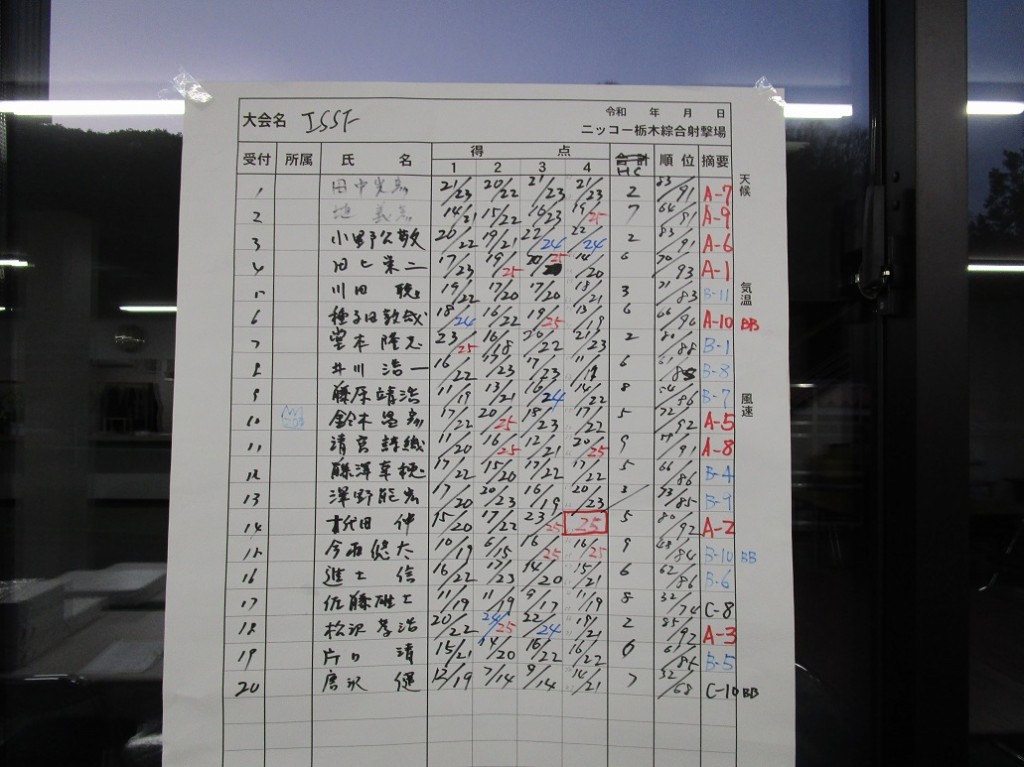 令和 年 月 日
大会名 ISSF
ニッコー栃木綜合射撃場
受付 所属 氏 名 得 点 合計 順位 摘要
1 2 3 4 HC
天候
気温
風速
1 田中 21/23 20/22 21/23 21/23 2 83/91 A-7
2 14/21 15/22 16/23 19/25 7 64/91 A-9
3 小野久敬 20/22 19/21 22/24 22/24 2 83/91 A-6
4 栄二 17/23 19/25 20/25 14/20 6 70/93 A-1
5 川田 聡 19/22 17/20 17/20 18/21 3 71/83 B-11
6 種子田 18/24 16/22 19/25 13/19 6 66/90 A-10 BB
7 堂本隆志 23/25 16/18 20/22 21/23 2 80/88 B-1
8 井川浩一 16/22 17/23 17/23 6 B-8
9 藤原靖浩 11/19 13/21 16/24 14/22 8 54/86 B-7
10 鈴木昌彦 17/22 20/25 18/23 17/22 5 72/92 A-5
11 清宮 11/20 16/25 12/21 20/25 9 A-8
12 藤澤 17/22 15/20 17/22 17/22 5 66/86 B-4
13 澤野能宏 17/20 20/23 16/19 20/23 3 73/85 B-9
14 千代田 伸 15/20 17/22 23/25 25 5 80/92 A-2
15 今西悠太 10/19 6/15 16/25 16/25 9 48/84 B-10 BB
16 進士 信 16/22 17/23 14/20 15/21 6 62/86 B-6
17 佐藤雄士 11/19 11/19 9/17 11/19 8 C-8
18 松沢孝浩 20/22 24/25 22/24 19/21 2 85/92 A-3
19 片口 清 15/21 14/20 16/22 16/22 6 61/85 B-5
20 唐沢 健 12/19 7/14 9/14 14/21 7 C-10 BB